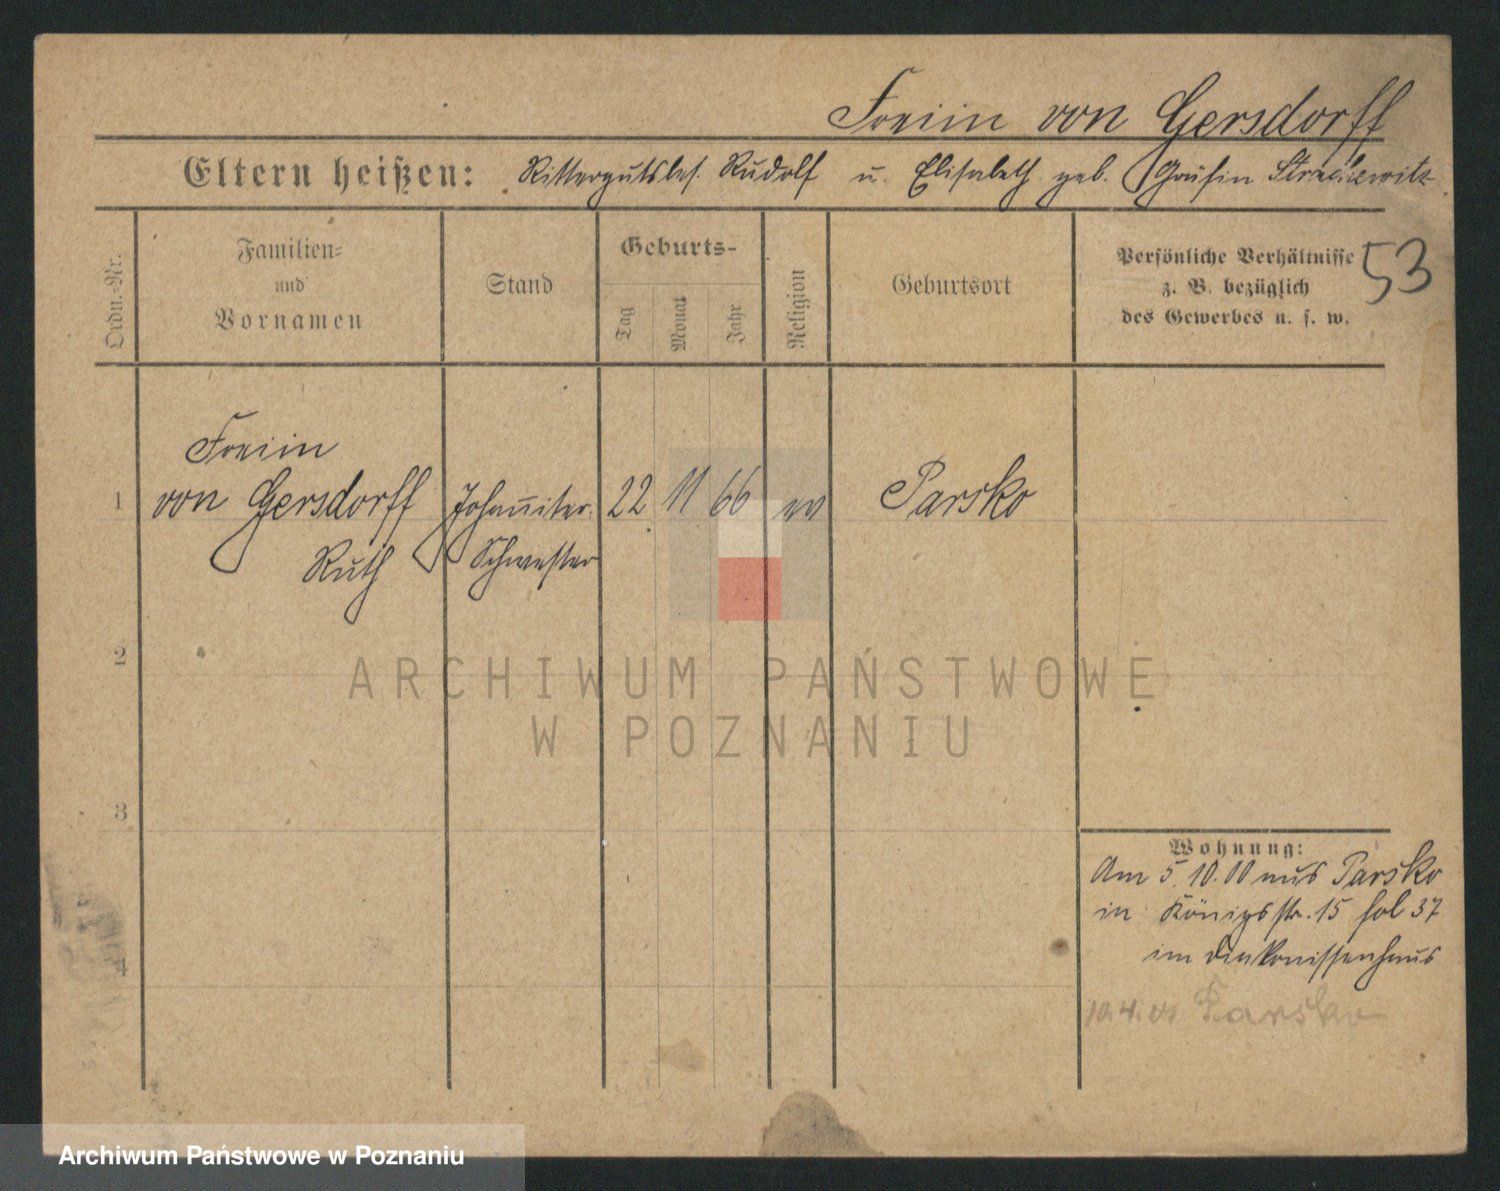 Freiin von Gersdorff
Eltern heißen: Rittergutsbes. Rudolf u. Elisabeth geb. Gräfin Strachwitz
Ordn.-Nr.
Familien-
und
Vornamen
Stand
Geburts-
Tag
Monat
Jahr
Religion
Geburtsort
Persönliche Verhältnisse
z. B. bezüglich
des Gewerbes u. s. w.
53
Freiin
1 von Gersdorff Johanniter. 22 11 66 ev Parsko
Ruth Schwester
2
ARCHIWUM PAŃSTWOWE
W POZNANIU
3
Wohnung:
Am 5.10.00 aus Parsko
in Königsstr. 15 fol 37
im Diakonissenhaus
4
10.4.01 Parsko
Archiwum Państwowe w Poznaniu